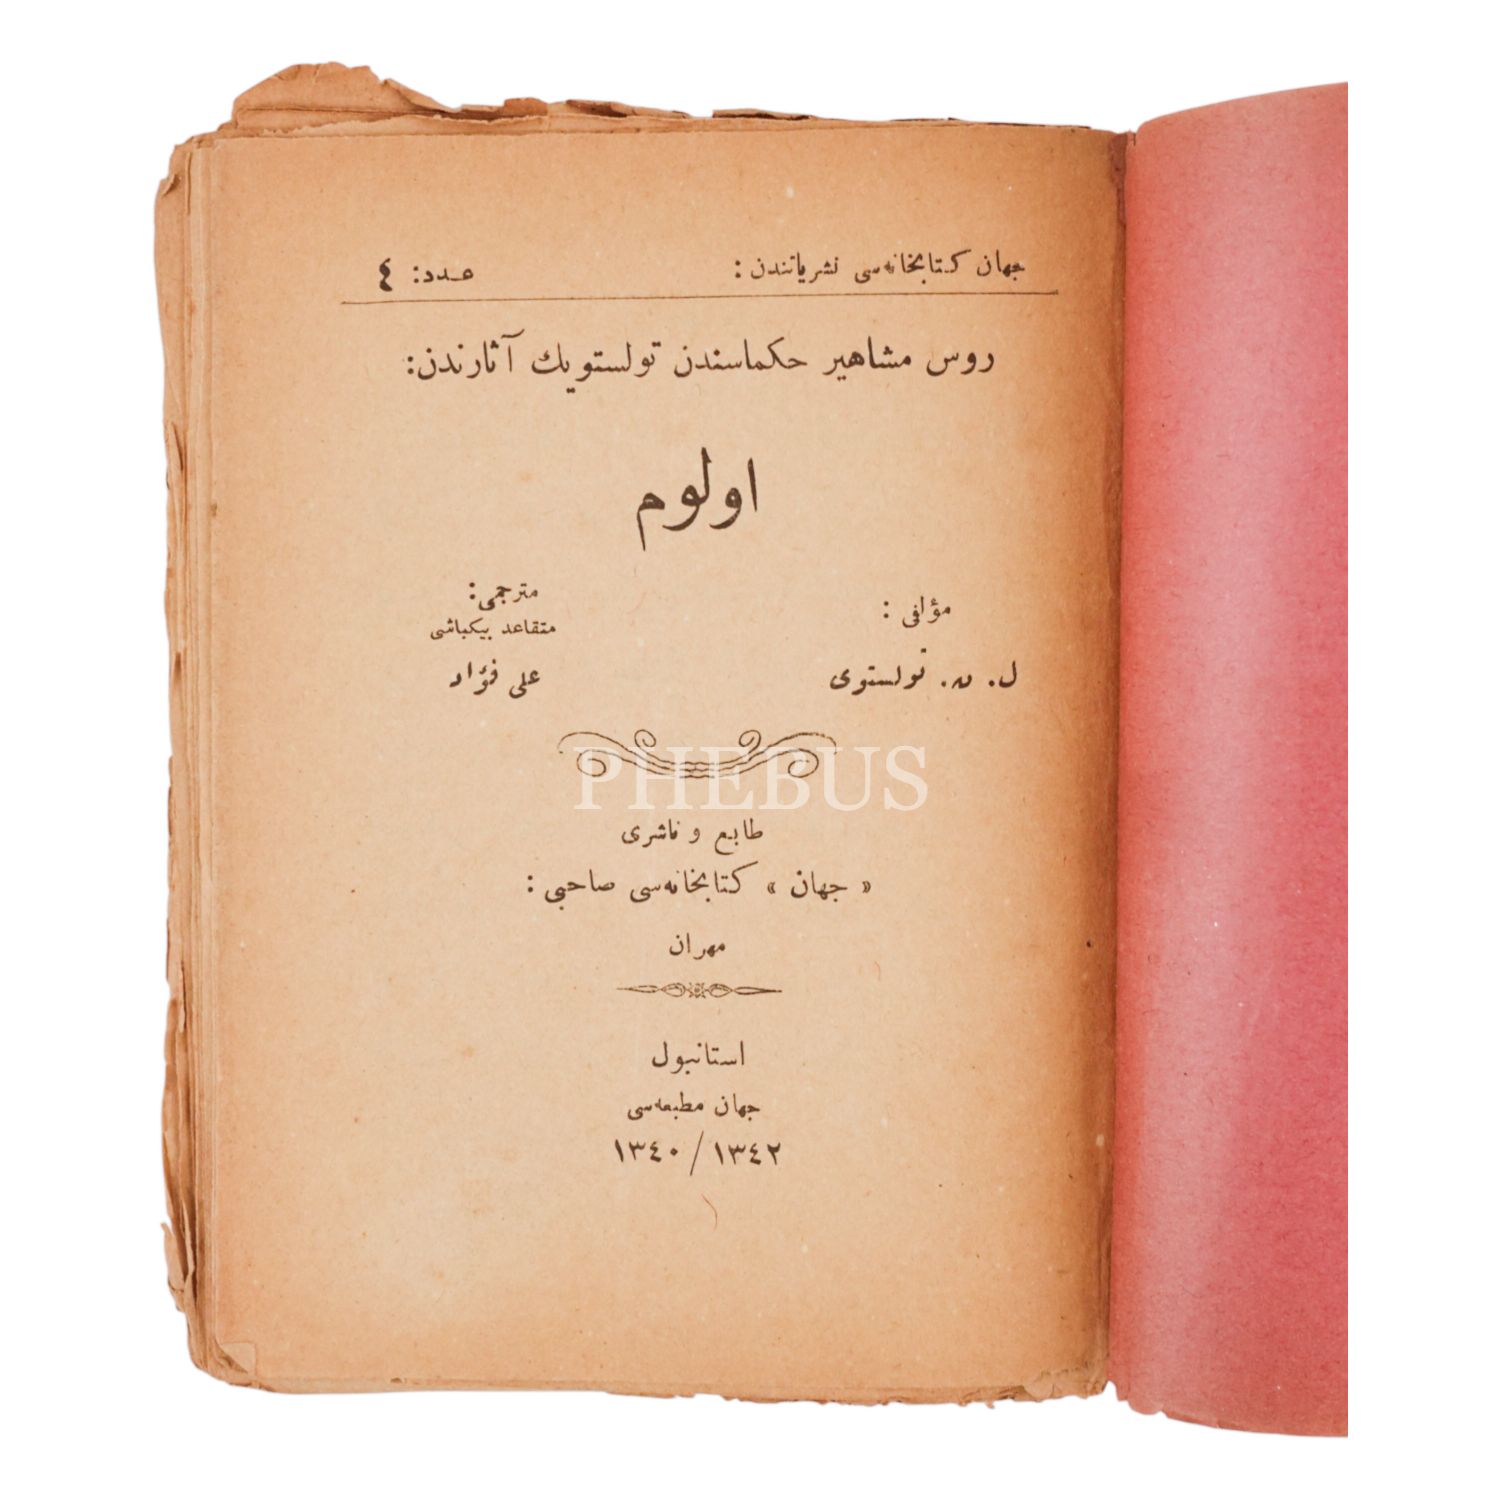 جهان کتابخانه‌سی نشریاتندن : عدد: ٤
روس مشاهیر حکماسندن تولستویك آثارندن:
اولوم
مؤلفی :
ل. ن. تولستوی
مترجمی:
متقاعد بیکباشی
علی فؤاد
PHEBUS
طابع و ناشری
« جهان » کتابخانه‌سی صاحبی :
مهران
استانبول
جهان مطبعه‌سی
١٣٤٢ / ١٣٤٠